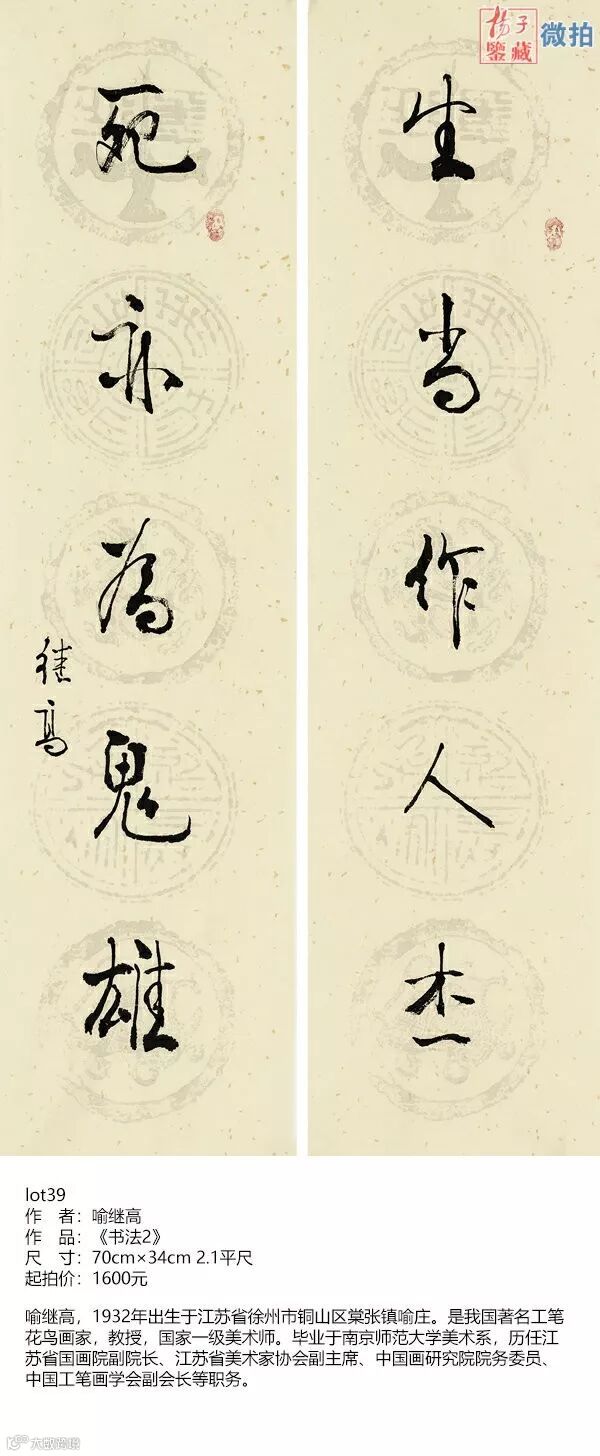 揚子
鑒藏
微拍
生当作人杰
死亦為鬼雄
继高
lot39
作 者：喻继高
作 品：《书法2》
尺 寸：70cm×34cm 2.1平尺
起拍价：1600元
喻继高，1932年出生于江苏省徐州市铜山区棠张镇喻庄。是我国著名工笔
花鸟画家，教授，国家一级美术师。毕业于南京师范大学美术系，历任江
苏省国画院副院长、江苏省美术家协会副主席、中国画研究院院务委员、
中国工笔画学会副会长等职务。
大数跨境